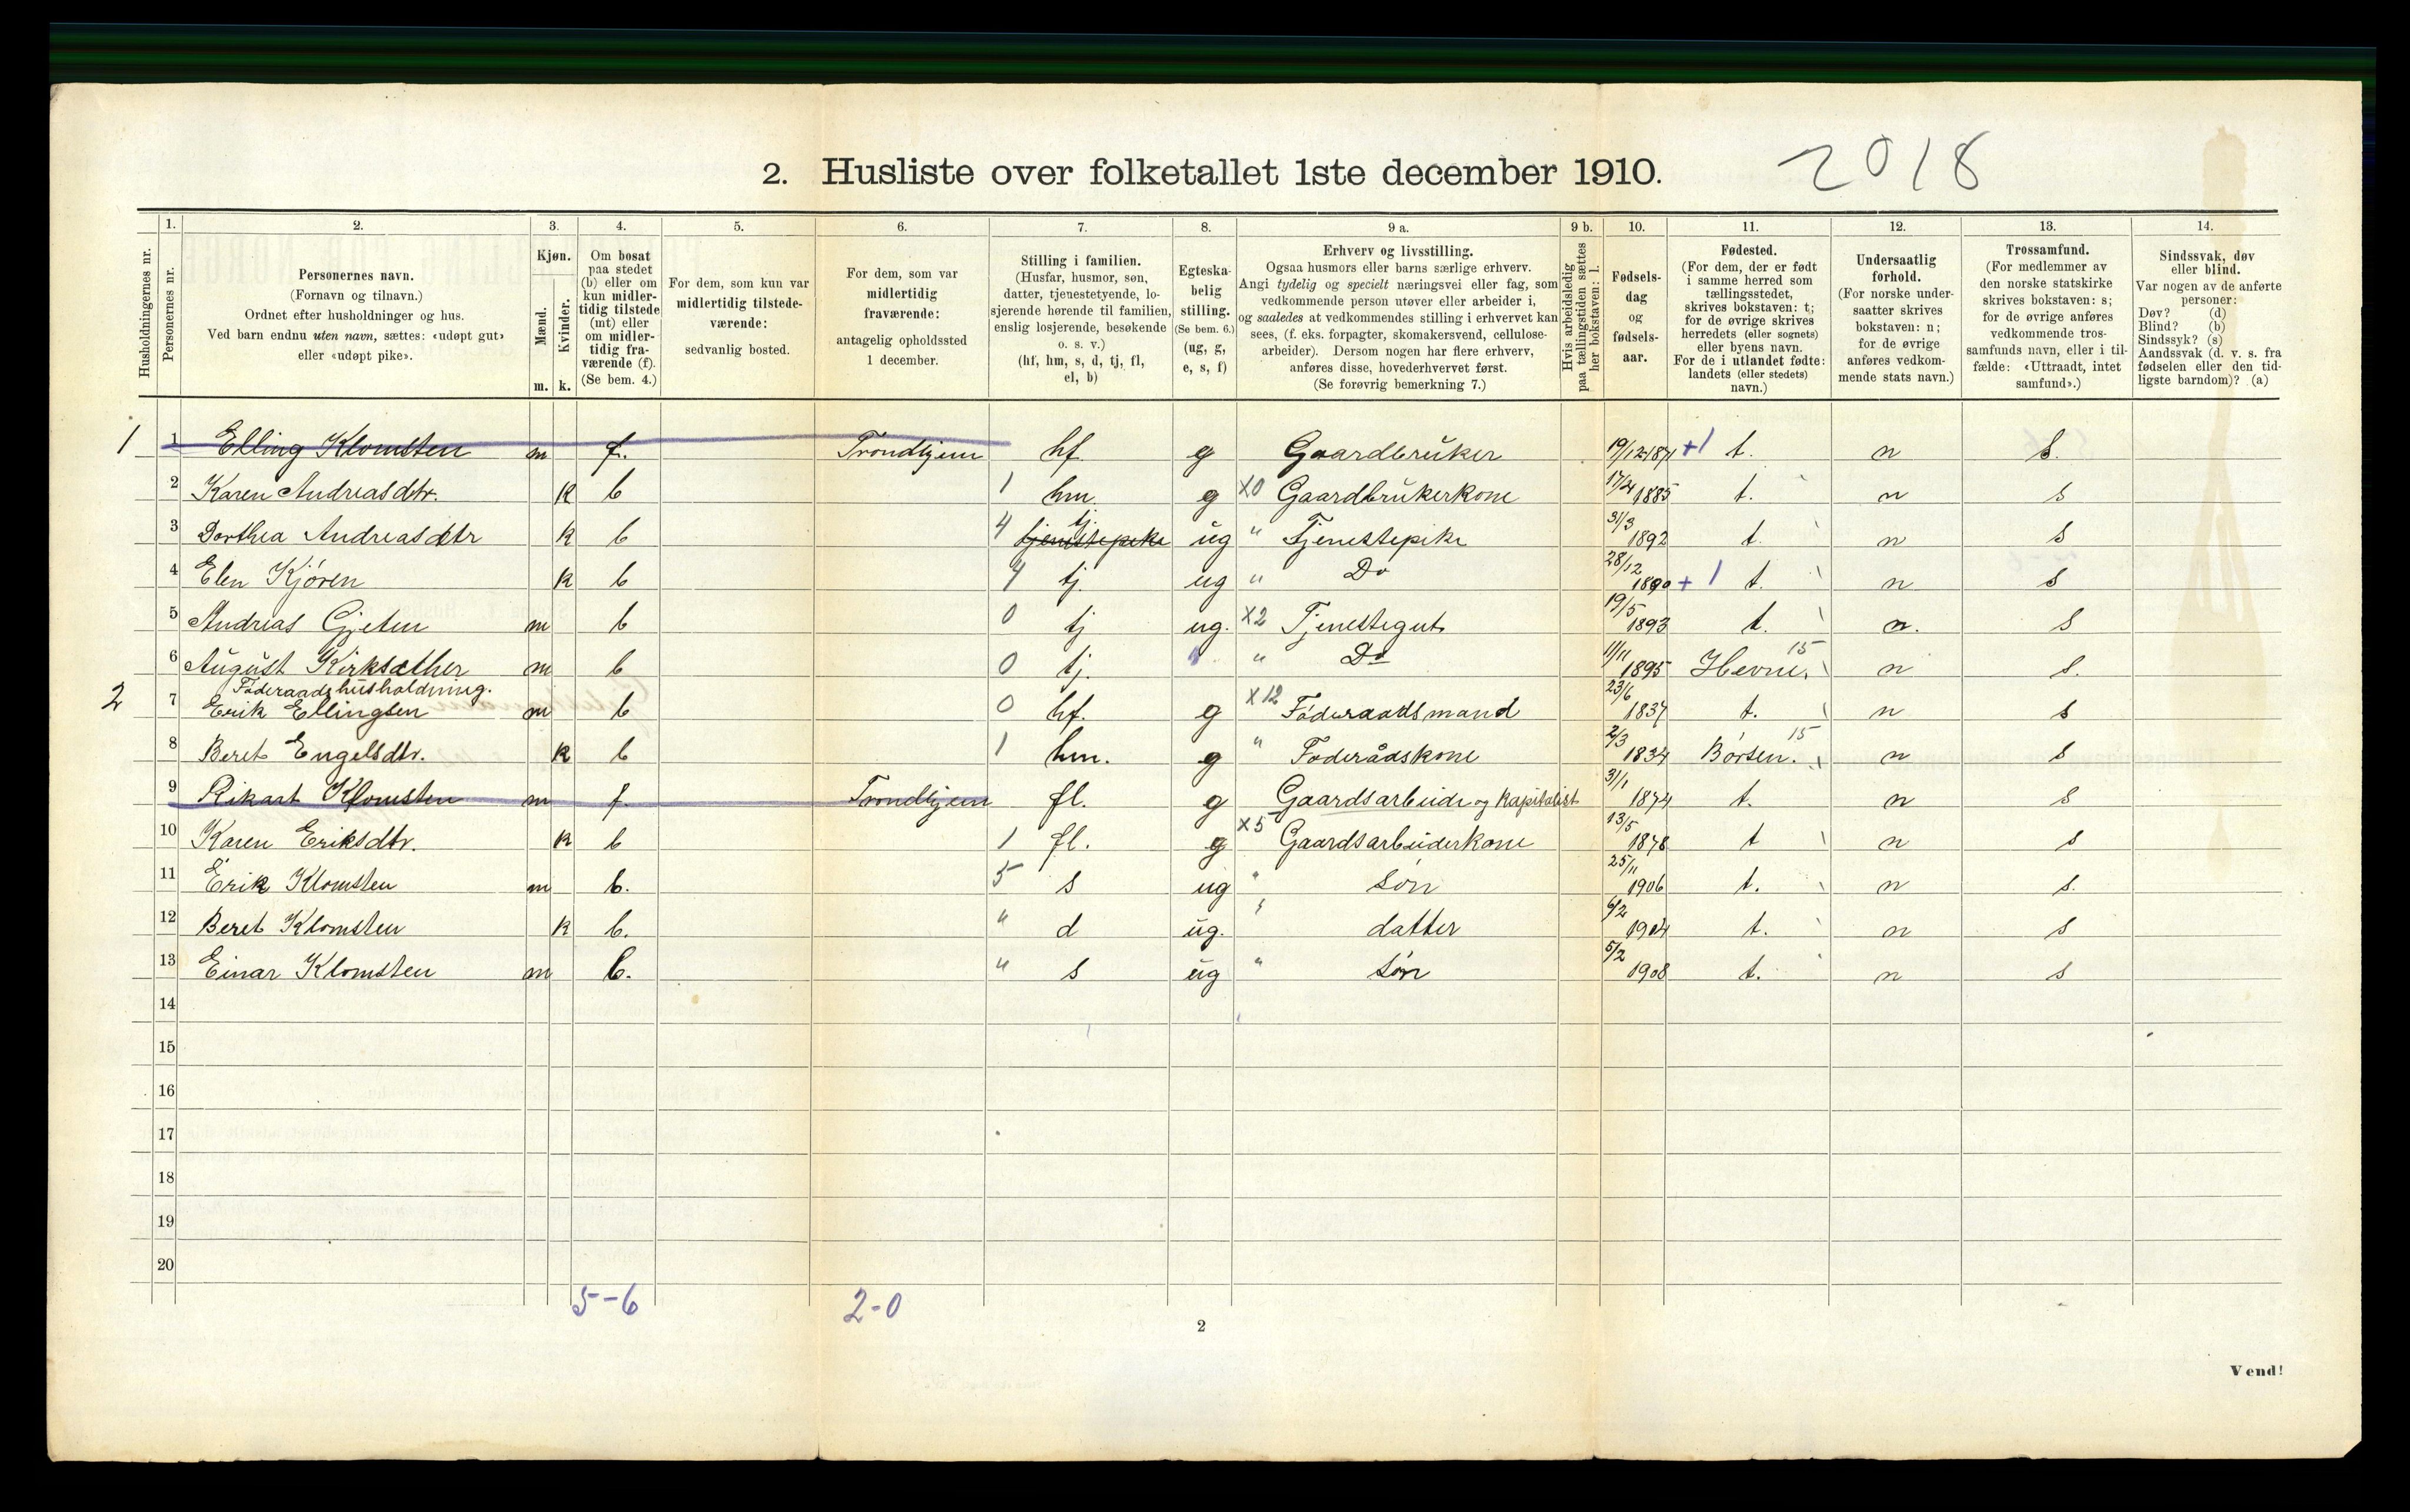 2. Husliste over folketallet 1ste december 1910.
2018
Husholdningernes nr.
1. Personernes nr.
2. Personernes navn. (Fornavn og tilnavn.) Ordnet efter husholdninger og hus. Ved barn endnu uten navn, sættes: «udøpt gut» eller «udøpt pike».
3. Kjøn. Mænd. m. Kvinder. k.
4. Om bosat paa stedet (b) eller om kun midlertidig tilstede (mt) eller om midlertidig fraværende (f). (Se bem. 4.)
5. For dem, som kun var midlertidig tilstedeværende: sedvanlig bosted.
6. For dem, som var midlertidig fraværende: antagelig opholdssted 1 december.
7. Stilling i familien. (Husfar, husmor, søn, datter, tjenestetyende, losjerende hørende til familien, enslig losjerende, besøkende o. s. v.) (hf, hm, s, d, tj, fl, el, b)
8. Egteskabelig stilling. (Se bem. 6.) (ug, g, e, s, f)
9 a. Erhverv og livsstilling. Ogsaa husmors eller barns særlige erhverv. Angi tydelig og specielt næringsvei eller fag, som vedkommende person utøver eller arbeider i, og saaledes at vedkommendes stilling i erhvervet kan sees, (f. eks. forpagter, skomakersvend, cellulosearbeider). Dersom nogen har flere erhverv, anføres disse, hovederhvervet først. (Se forøvrig bemerkning 7.)
9 b. Hvis arbeidsledig paa tællingstiden sættes her bokstaven: l.
10. Fødselsdag og fødselsaar.
11. Fødested. (For dem, der er født i samme herred som tællingsstedet, skrives bokstaven: t; for de øvrige skrives herredets (eller sognets) eller byens navn. For de i utlandet fødte: landets (eller stedets) navn.)
12. Undersaatlig forhold. (For norske undersaatter skrives bokstaven: n; for de øvrige anføres vedkommende stats navn.)
13. Trossamfund. (For medlemmer av den norske statskirke skrives bokstaven: s; for de øvrige anføres vedkommende trossamfunds navn, eller i tilfælde: «Uttraadt, intet samfund».)
14. Sindssvak, døv eller blind. Var nogen av de anførte personer: Døv? (d) Blind? (b) Sindssyk? (s) Aandssvak (d. v. s. fra fødselen eller den tidligste barndom)? (a)
1 1 Elling Klomsten m f. Trondhjem hf g Gaardbruker 19/12 1871 +1 t. n s.
2 Karen Andreasdtr. k b 1 hm g X0 Gaardbrukerkone 17/4 1885 t. n s
3 Dorthea Andreasdtr k b 4 tjenestepike tj. ug " Tjenestepike 31/3 1892 t. n s
4 Elen Kjøren k b 4 tj. ug " Do 28/12 1890 +1 t. n s
5 Andreas Gjeten m b 0 tj ug. X2 Tjenestegut 19/5 1893 t. n. s
6 August Kirksæther m b 0 tj. " Do 11/11 1895 Hevne. 15 n s.
Føderaadshusholdning.
2 7 Erik Ellingsen m b 0 hf. g X12 Føderaadsmand 23/6 1837 t. n s
8 Beret Engelsdtr. k b 1 hm. g " Føderådskone 2/3 1834 Børsen. 15 n s
9 Rikart Klomsten m f Trondhjem fl. g Gaardsarbeider og kapitalist 31/1 1874 t. n s
10 Karen Eriksdtr. k b 1 fl. g X5 Gaardsarbeiderkone 13/5 1878 t n s
11 Erik Klomsten m b. 5 s ug " søn 25/11 1906 t. n s.
12 Beret Klomsten k b. " d ug. " datter 6/2 1904 t. n s
13 Einar Klomsten m b. " s ug " søn 5/2 1908 t. n s
14
15
16
17
18
19
20
5-6 2-0
2
Vend!